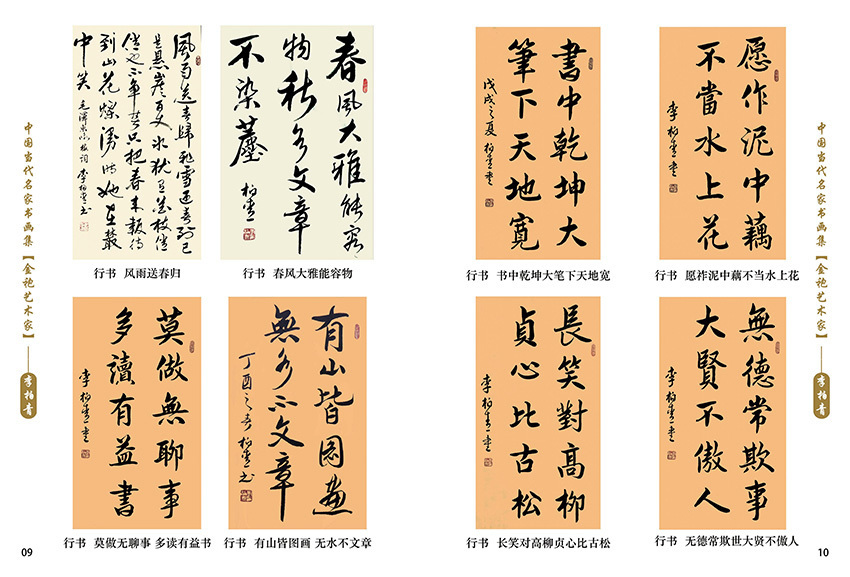 中国当代名家书画集【金袍艺术家】
李柏青
風雨送春歸飛雪迎春到已
是悬崖百丈冰犹有花枝俏
俏也不争春只把春来報待
到山花爛漫時她在叢
中笑 毛澤東詠梅词 李柏青书
行书 风雨送春归
春風大雅能容
物秋水文章
不染塵
柏青
行书 春风大雅能容物
莫做無聊事
多讀有益書
李柏青書
行书 莫做无聊事 多读有益书
有山皆圖畫
無水不文章
丁酉之春柏青书
行书 有山皆图画 无水不文章
09
書中乾坤大
筆下天地寬
戊戌之夏柏青書
行书 书中乾坤大笔下天地宽
愿作泥中藕
不當水上花
李柏青書
行书 愿祚泥中藕不当水上花
長笑對高柳
貞心比古松
李柏青書
行书 长笑对高柳贞心比古松
無德常欺事
大賢不傲人
李柏青書
行书 无德常欺世大贤不傲人
中国当代名家书画集【金袍艺术家】
李柏青
10